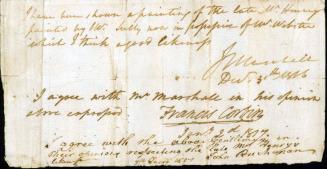 I have been shown a painting of the late Mr. Henry
painted by Mr. Sully now in possession of Mr. Webster
which I think a good likeness
J Marshall
Decr 30th 1816
I agree with Mr Marshall in his opinion
above expressed
Francis Corbin
Jany 2d 1817.
I agree with the above Gentlemen in
their opinions respecting the late Mr Henrys
likeness
John Buchanan